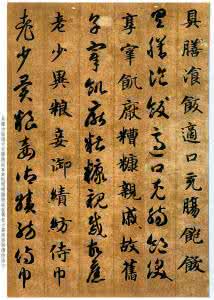 具膳飡飯適口充腸飽飫
具膳飡飯適口充腸飽飫
享宰飢厭糟糠親戚故舊
享宰飢厭糟糠親戚故舊
老少異糧妾御績紡侍巾
老少異糧妾御績紡侍巾